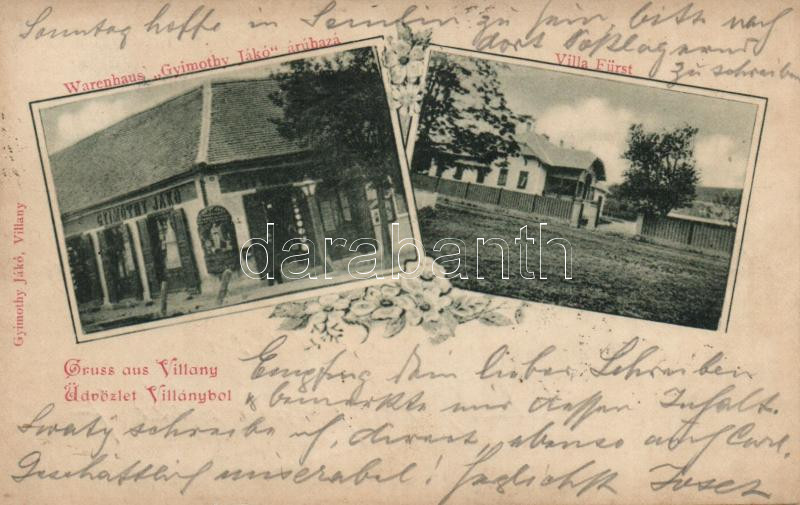 Sonntag hoffe in Semlin zu sein, bitte nach
dort Postlagernd
zu schreiben
Warenhaus „Gyimothy Jákó" árúhaza
Villa Fürst
GYIMOTHY JÁKÓ
Gyimothy Jákó, Villany
darabanth
Gruss aus Villany
Üdvözlet Villányból
Empfing Dein lieber Schreiben
& bemerkte mir dessen Inhalt.
schreibe ich direct, ebenso auch Carl.
Geschäftlich miserabel! Josef